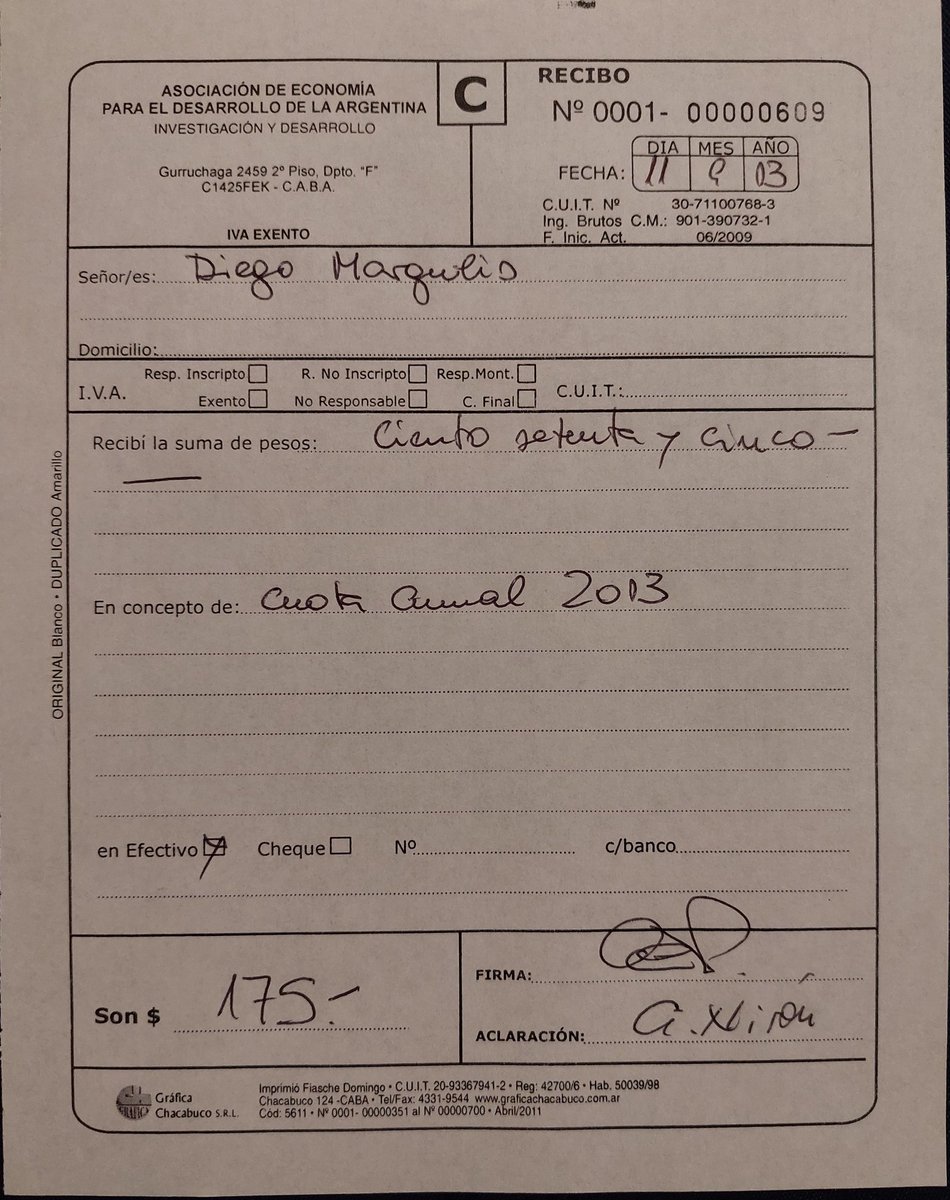 ASOCIACIÓN DE ECONOMÍA
PARA EL DESARROLLO DE LA ARGENTINA
INVESTIGACIÓN Y DESARROLLO
Gurruchaga 2459 2º Piso, Dpto. "F"
C1425FEK - C.A.B.A.
IVA EXENTO
C
RECIBO
Nº 0001- 00000609
DIA MES AÑO
FECHA: 11 9 13
C.U.I.T. Nº 30-71100768-3
Ing. Brutos C.M.: 901-390732-1
F. Inic. Act. 06/2009
Señor/es: Diego Margulis
Domicilio:
I.V.A. Resp. Inscripto R. No Inscripto Resp.Mont.
Exento No Responsable C. Final C.U.I.T.:
Recibí la suma de pesos: Ciento setenta y cinco —
En concepto de: cuota anual 2013
en Efectivo Cheque Nº c/banco
Son $ 175.-
FIRMA:
ACLARACIÓN:
ORIGINAL Blanco • DUPLICADO Amarillo
Gráfica
Chacabuco S.R.L.
Imprimió Fiasche Domingo • C.U.I.T. 20-93367941-2 • Reg: 42700/6 • Hab. 50039/98
Chacabuco 124 -CABA • Tel/Fax: 4331-9544 www.graficachacabuco.com.ar
Cód: 5611 • Nº 0001- 00000351 al Nº 00000700 • Abril/2011